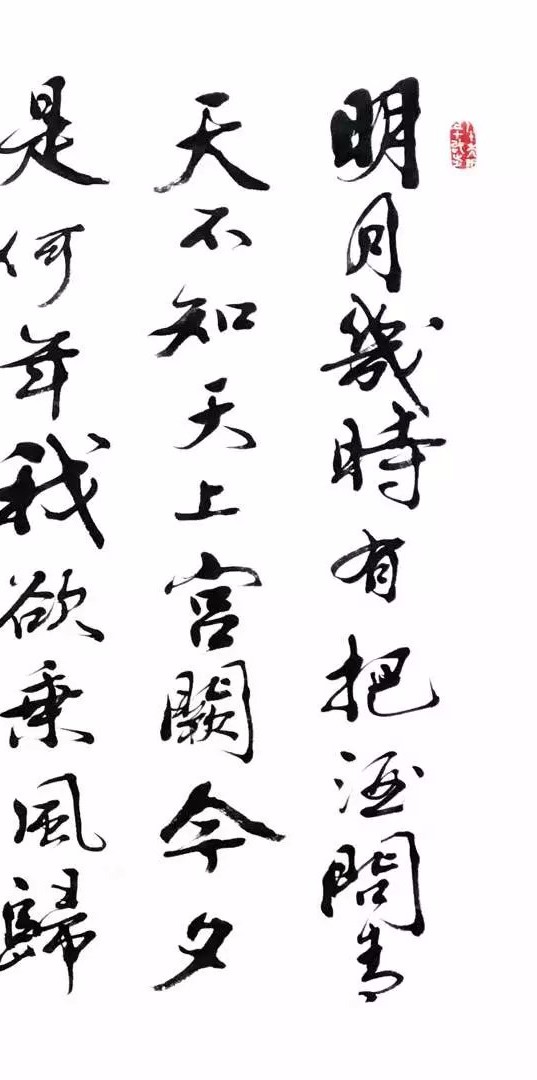 明月幾時有把酒問青
天不知天上宮闕今夕
是何年我欲乗風歸